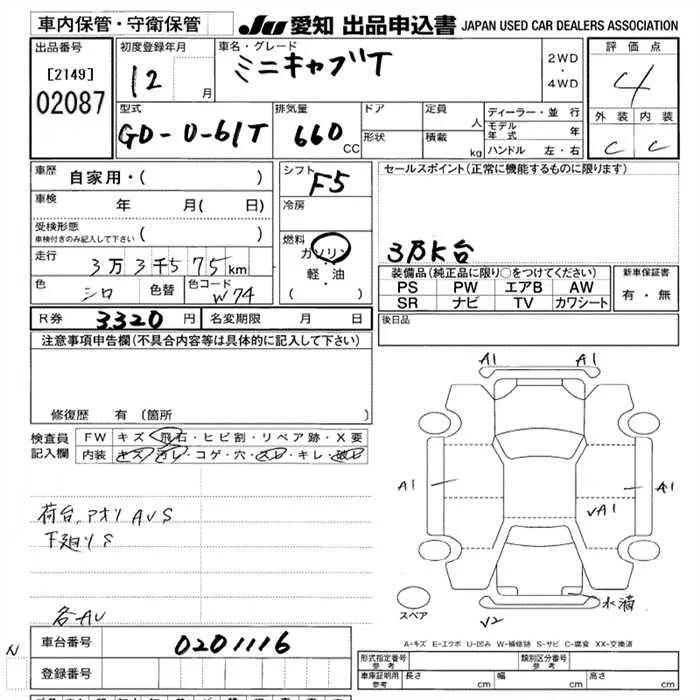 車内保管・守衛保管
JU 愛知 出品申込書 JAPAN USED CAR DEALERS ASSOCIATION
出品番号
[2149]
02087
初度登録年月
12 月
車名・グレード
ミニキャブT
2WD
・
4WD
評価点
4
外装 内装
C C
型式
GD-U-61T
排気量
660 CC
ドア
形状
定員 人
積載 kg
ディーラー・並行
モデル年式 年
ハンドル 左・右
車歴 自家用・( )
車検 年 月( 日)
受検形態
車検付きのみ記入して下さい ( )
走行 3万3千575km
色 シロ 色替 色コード W74
シフト F5
冷房
燃料
ガソリン
・
軽・油
( )
セールスポイント(正常に機能するものに限ります)
3万K台
装備品(純正品に限り○をつけてください)
PS PW エアB AW
SR ナビ TV カワシート
新車保証書
有・無
R券 3320 円 名変期限 月 日
後日品
注意事項申告欄(不具合内容等は具体的に記入して下さい)
修復歴 有(箇所
検査員記入欄
FW キズ・飛石・ヒビ割・リペア跡・X要
内装 キズ・汚レ・コゲ・穴・スレ・キレ・破レ
荷台,アオリ AUS
下廻り S
各AU
A1 A1
A1 A1
VA1
水滴
V2
スペア
A-キズ E-エクボ U-凹み W-補修跡 S-サビ C-腐食 XX-交換済
N
車台番号 0201116
登録番号
形式指定番号 参考
類別区分番号 参考
車庫証明用 参考 長さ cm 幅 cm 高さ cm